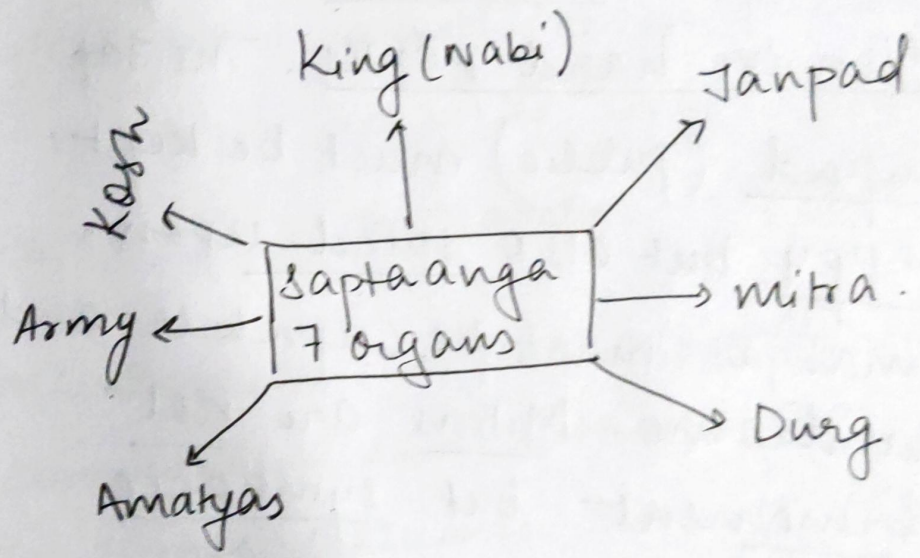 King (Nabi)
Janpad
Kosh
saptaanga
7 organs
mitra.
Army
Durg
Amatyas